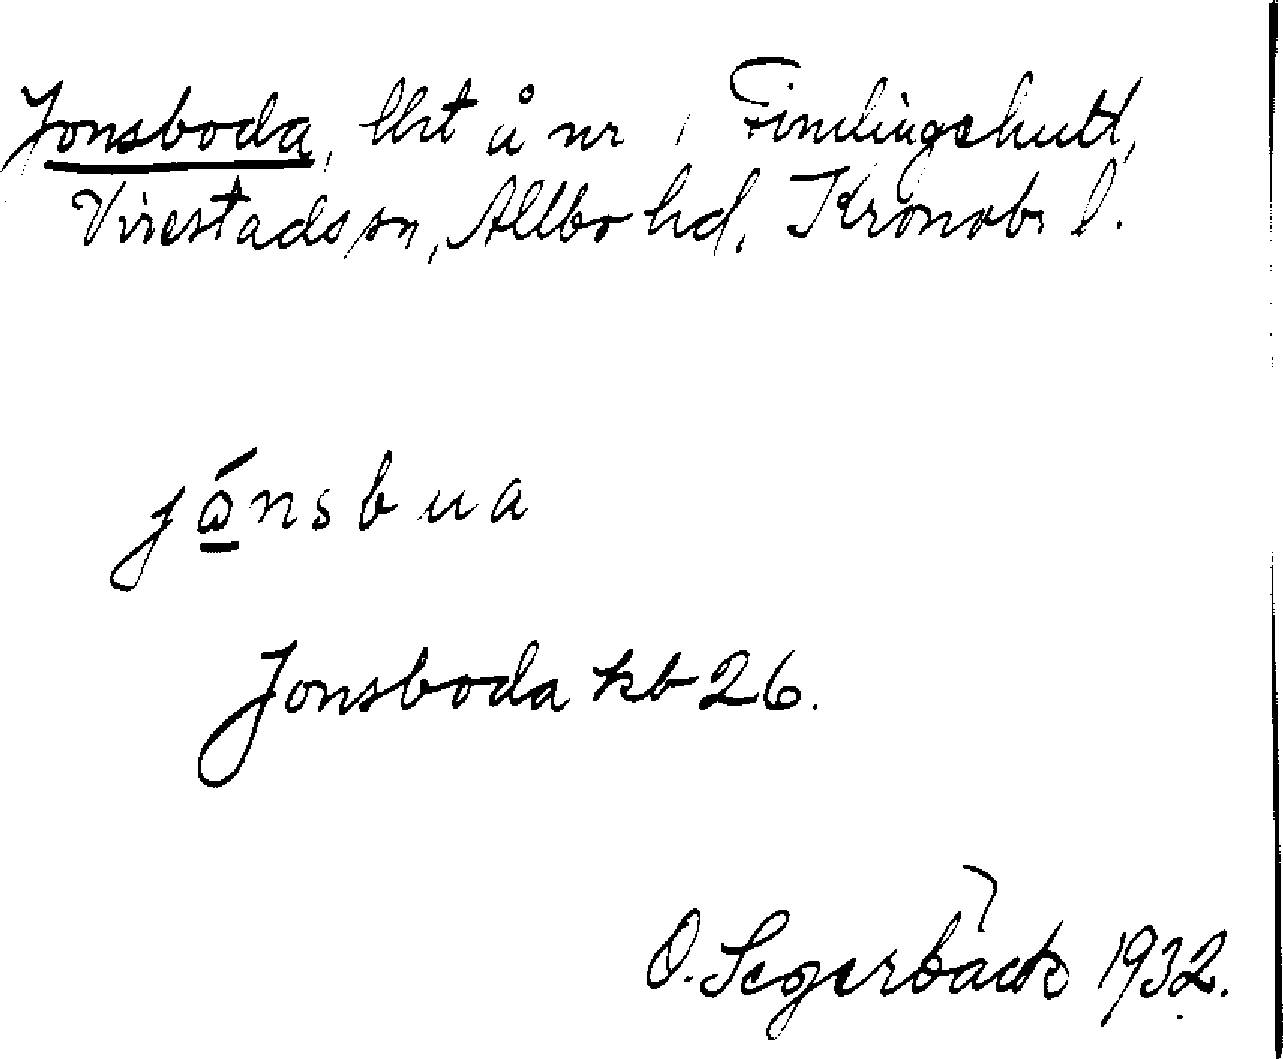 Jonsboda, lht å nr 1 Findingshult,
Virestads sn, Allbo hd, Kronob. l.
jónsbua
Jonsboda kb 26.
O. Segerbäck 1932.